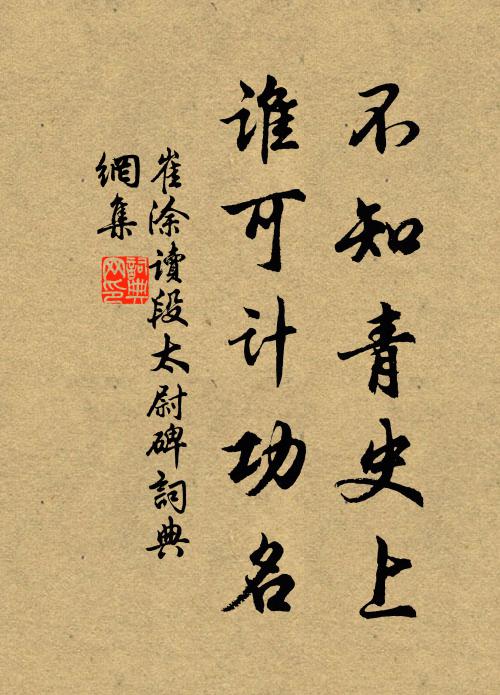 不知青史上
谁可计功名
崔涂讀段太尉碑詞典
網集
詞典
网印